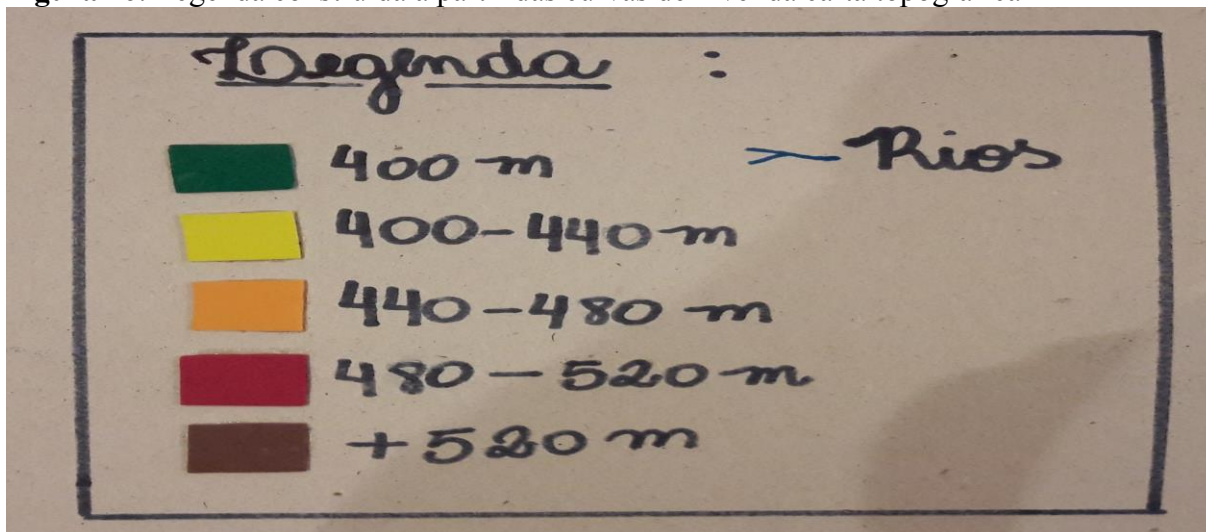 Legenda :
400 m
Rios
400-440 m
440-480 m
480-520 m
+520 m